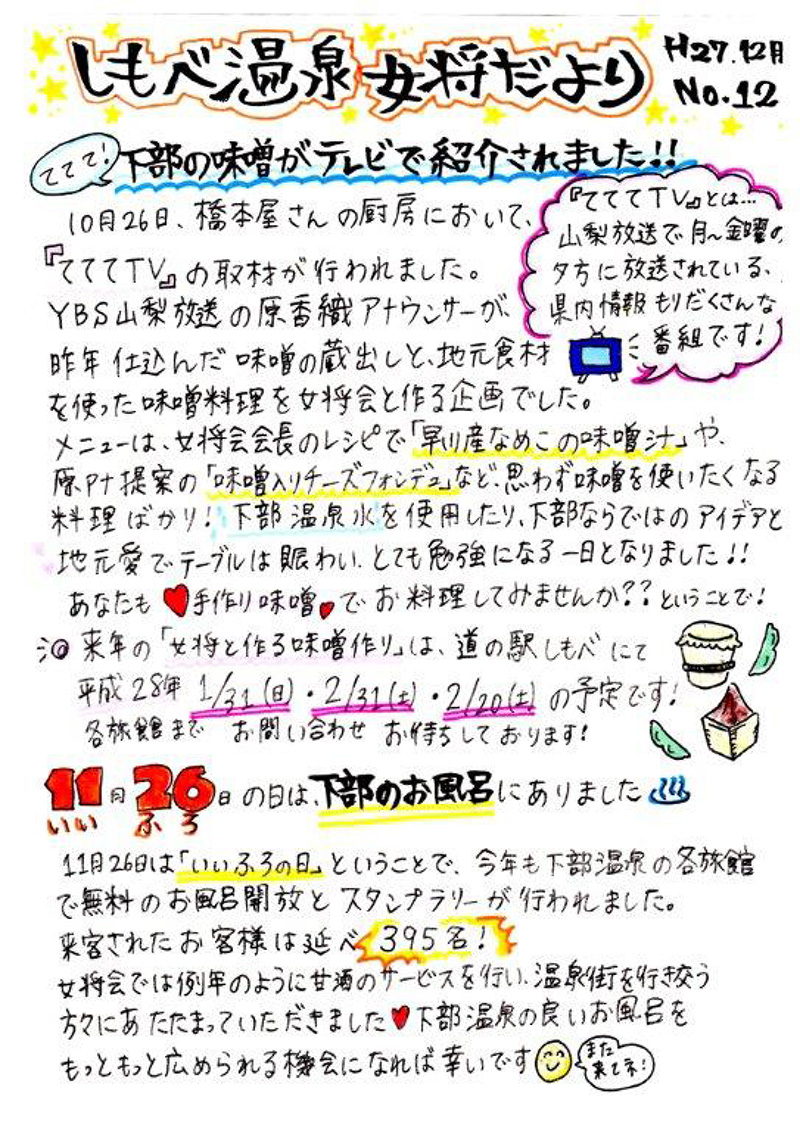 しもべ温泉 女将だより
H27.12月
No.12
ててて!
下部の味噌がテレビで紹介されました!!
10月26日、橋本屋さんの厨房において、
『てててTV』の取材が行われました。
YBS山梨放送の原香織アナウンサーが、
昨年仕込んだ味噌の蔵出しと、地元食材
を使った味噌料理を女将会と作る企画でした。
『てててTV』とは…
山梨放送で月~金曜の
夕方に放送されている、
県内情報もりだくさんな
番組です!
メニューは、女将会会長のレシピで「早川産なめこの味噌汁」や、
原アナ提案の「味噌入りチーズフォンデュ」など、思わず味噌を使いたくなる
料理ばかり!下部温泉水を使用したり、下部ならではのアイデアと
地元愛でテーブルは賑わい、とても勉強になる一日となりました!!
あなたも♥手作り味噌♥でお料理してみませんか??ということで!
来年の「女将と作る味噌作り」は、道の駅しもべにて
平成28年 1/31(日)・2/31(土)・2/20(土)の予定です!
各旅館まで お問い合わせ お待ちしております!
11月26日の日は、下部のお風呂にありました♨
いい ふろ
11月26日は「いいふろの日」ということで、今年も下部温泉の各旅館
で無料のお風呂開放とスタンプラリーが行われました。
来客されたお客様は延べ395名!
女将会では例年のように甘酒のサービスを行い、温泉街を行き交う
方々にあたたまっていただきました♥下部温泉の良いお風呂を
もっともっと広められる機会になれば幸いです
また
来てネ!